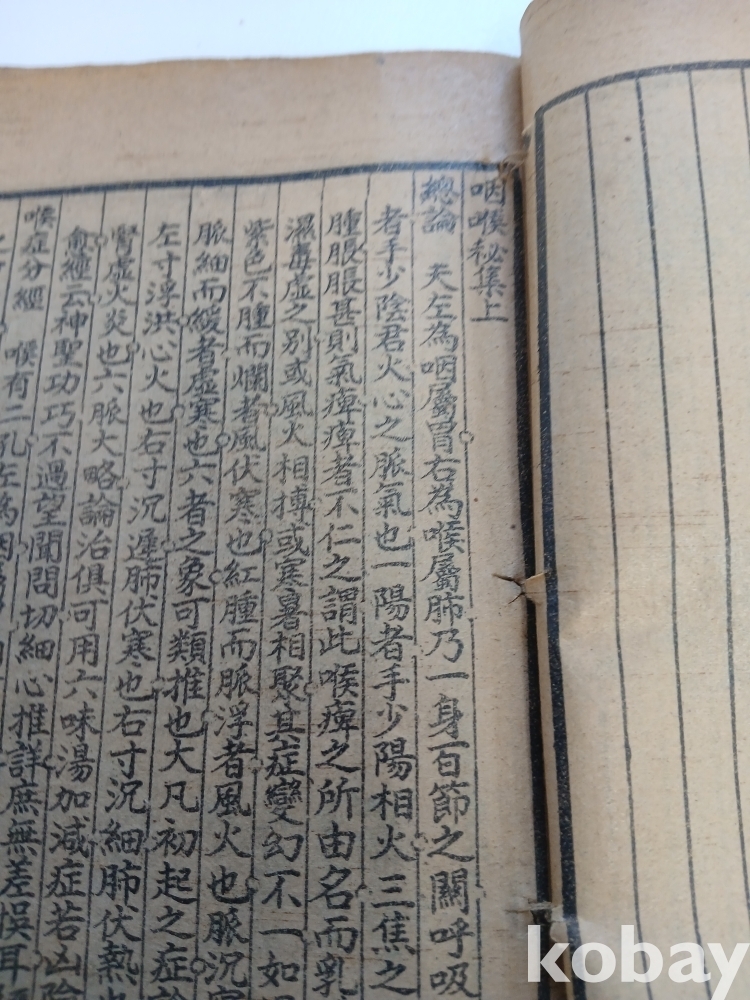 咽喉秘集上
總論 夫左為咽屬胃右為喉屬肺乃一身百節之關呼吸
者手少陰君火心之脈氣也一陽者手少陽相火三焦之
腫脹脹甚則氣痺痺者不仁之謂此喉痺之所由名而乳
濕毒虛之別或風火相搏或寒暑相聚其症變幻不一如
紫色不腫而爛者風伏寒也紅腫而脈浮者風火也脈沉
脈細而緩者虛寒也六者之象可類推也大凡初起之症
左寸浮洪心火也右寸沉遲肺伏寒也右寸沉細肺伏熱
腎虛火炎也六脈大略論治俱可用六味湯加減症若凶險
愈經云神聖功巧不過望聞問切細心推詳庶無差悮耳
喉症分經 喉有二孔左為咽
kobay